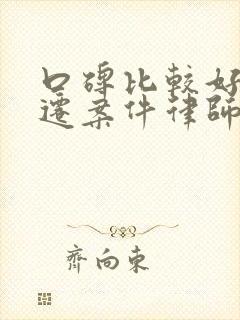 口碑比較好
遷案件律師
齊向東